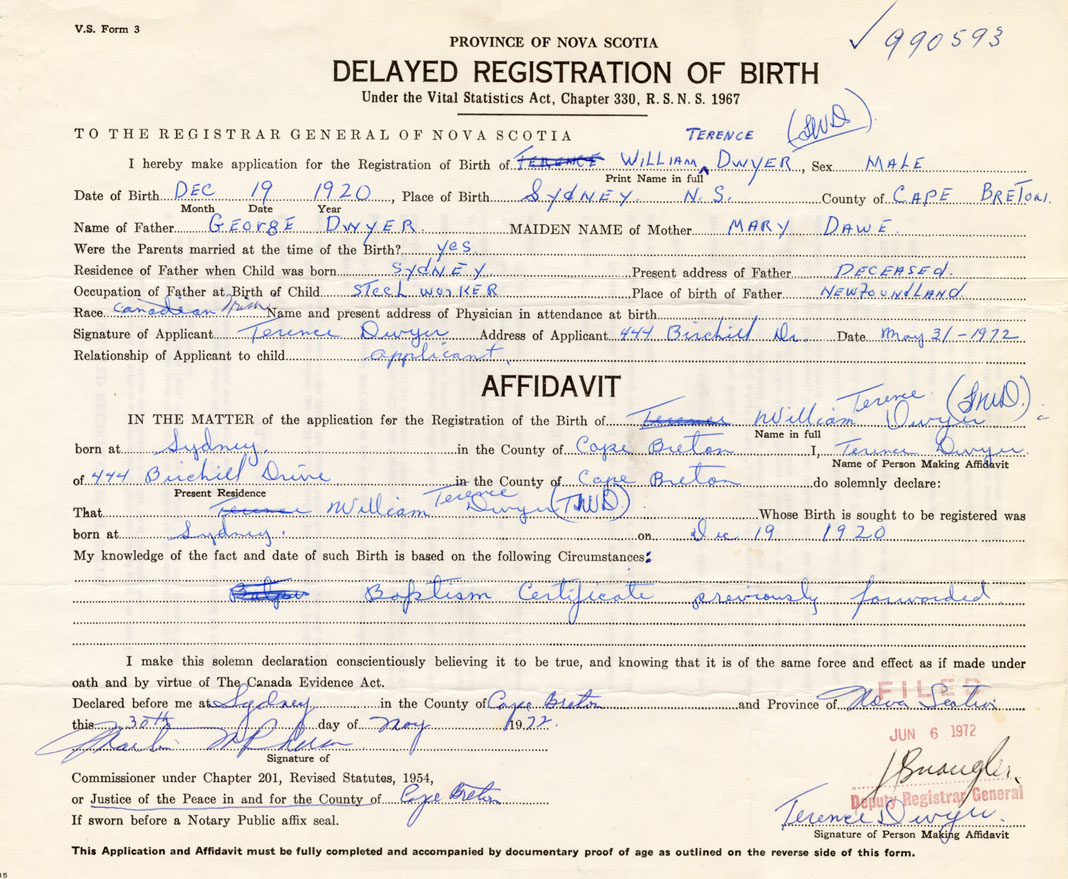 V.S. Form 3
✓990593
PROVINCE OF NOVA SCOTIA
DELAYED REGISTRATION OF BIRTH
Under the Vital Statistics Act, Chapter 330, R. S. N. S. 1967
TO THE REGISTRAR GENERAL OF NOVA SCOTIA TERENCE
I hereby make application for the Registration of Birth of TERENCE WILLIAM ^ DWYER, Sex MALE
Print Name in full
Date of Birth DEC 19 1920, Place of Birth SYDNEY N.S. County of CAPE BRETON.
Month Date Year
Name of Father GEORGE DWYER MAIDEN NAME of Mother MARY DAWE
Were the Parents married at the time of the Birth? yes
Residence of Father when Child was born SYDNEY Present address of Father DECEASED.
Occupation of Father at Birth of Child STEEL WORKER Place of birth of Father NEWFOUNDLAND
Race Canadian Irish Name and present address of Physician in attendance at birth
Signature of Applicant Terence Dwyer Address of Applicant 444 Birchill Dr. Date May 31-1972
Relationship of Applicant to child applicant
AFFIDAVIT
Terence (TWD)
IN THE MATTER of the application for the Registration of the Birth of Terence William Dwyer
Name in full
born at Sydney. in the County of Cape Breton I, Terence Dwyer
Name of Person Making Affidavit
of 444 Birchill Drive in the County of Cape Breton do solemnly declare:
Present Residence
Terence
That Terence William Dwyer (TWD) Whose Birth is sought to be registered was
born at Sydney. on Dec 19 1920
My knowledge of the fact and date of such Birth is based on the following Circumstances:
Baptism Certificate previously forwarded.
I make this solemn declaration conscientiously believing it to be true, and knowing that it is of the same force and effect as if made under
oath and by virtue of The Canada Evidence Act.
FILED
Declared before me at Sydney in the County of Cape Breton and Province of Nova Scotia
this 30th day of May 1972.
JUN 6 1972
Signature of
Commissioner under Chapter 201, Revised Statutes, 1954,
Deputy Registrar General
or Justice of the Peace in and for the County of Cape Breton
Terence Dwyer.
If sworn before a Notary Public affix seal.
Signature of Person Making Affidavit
This Application and Affidavit must be fully completed and accompanied by documentary proof of age as outlined on the reverse side of this form.